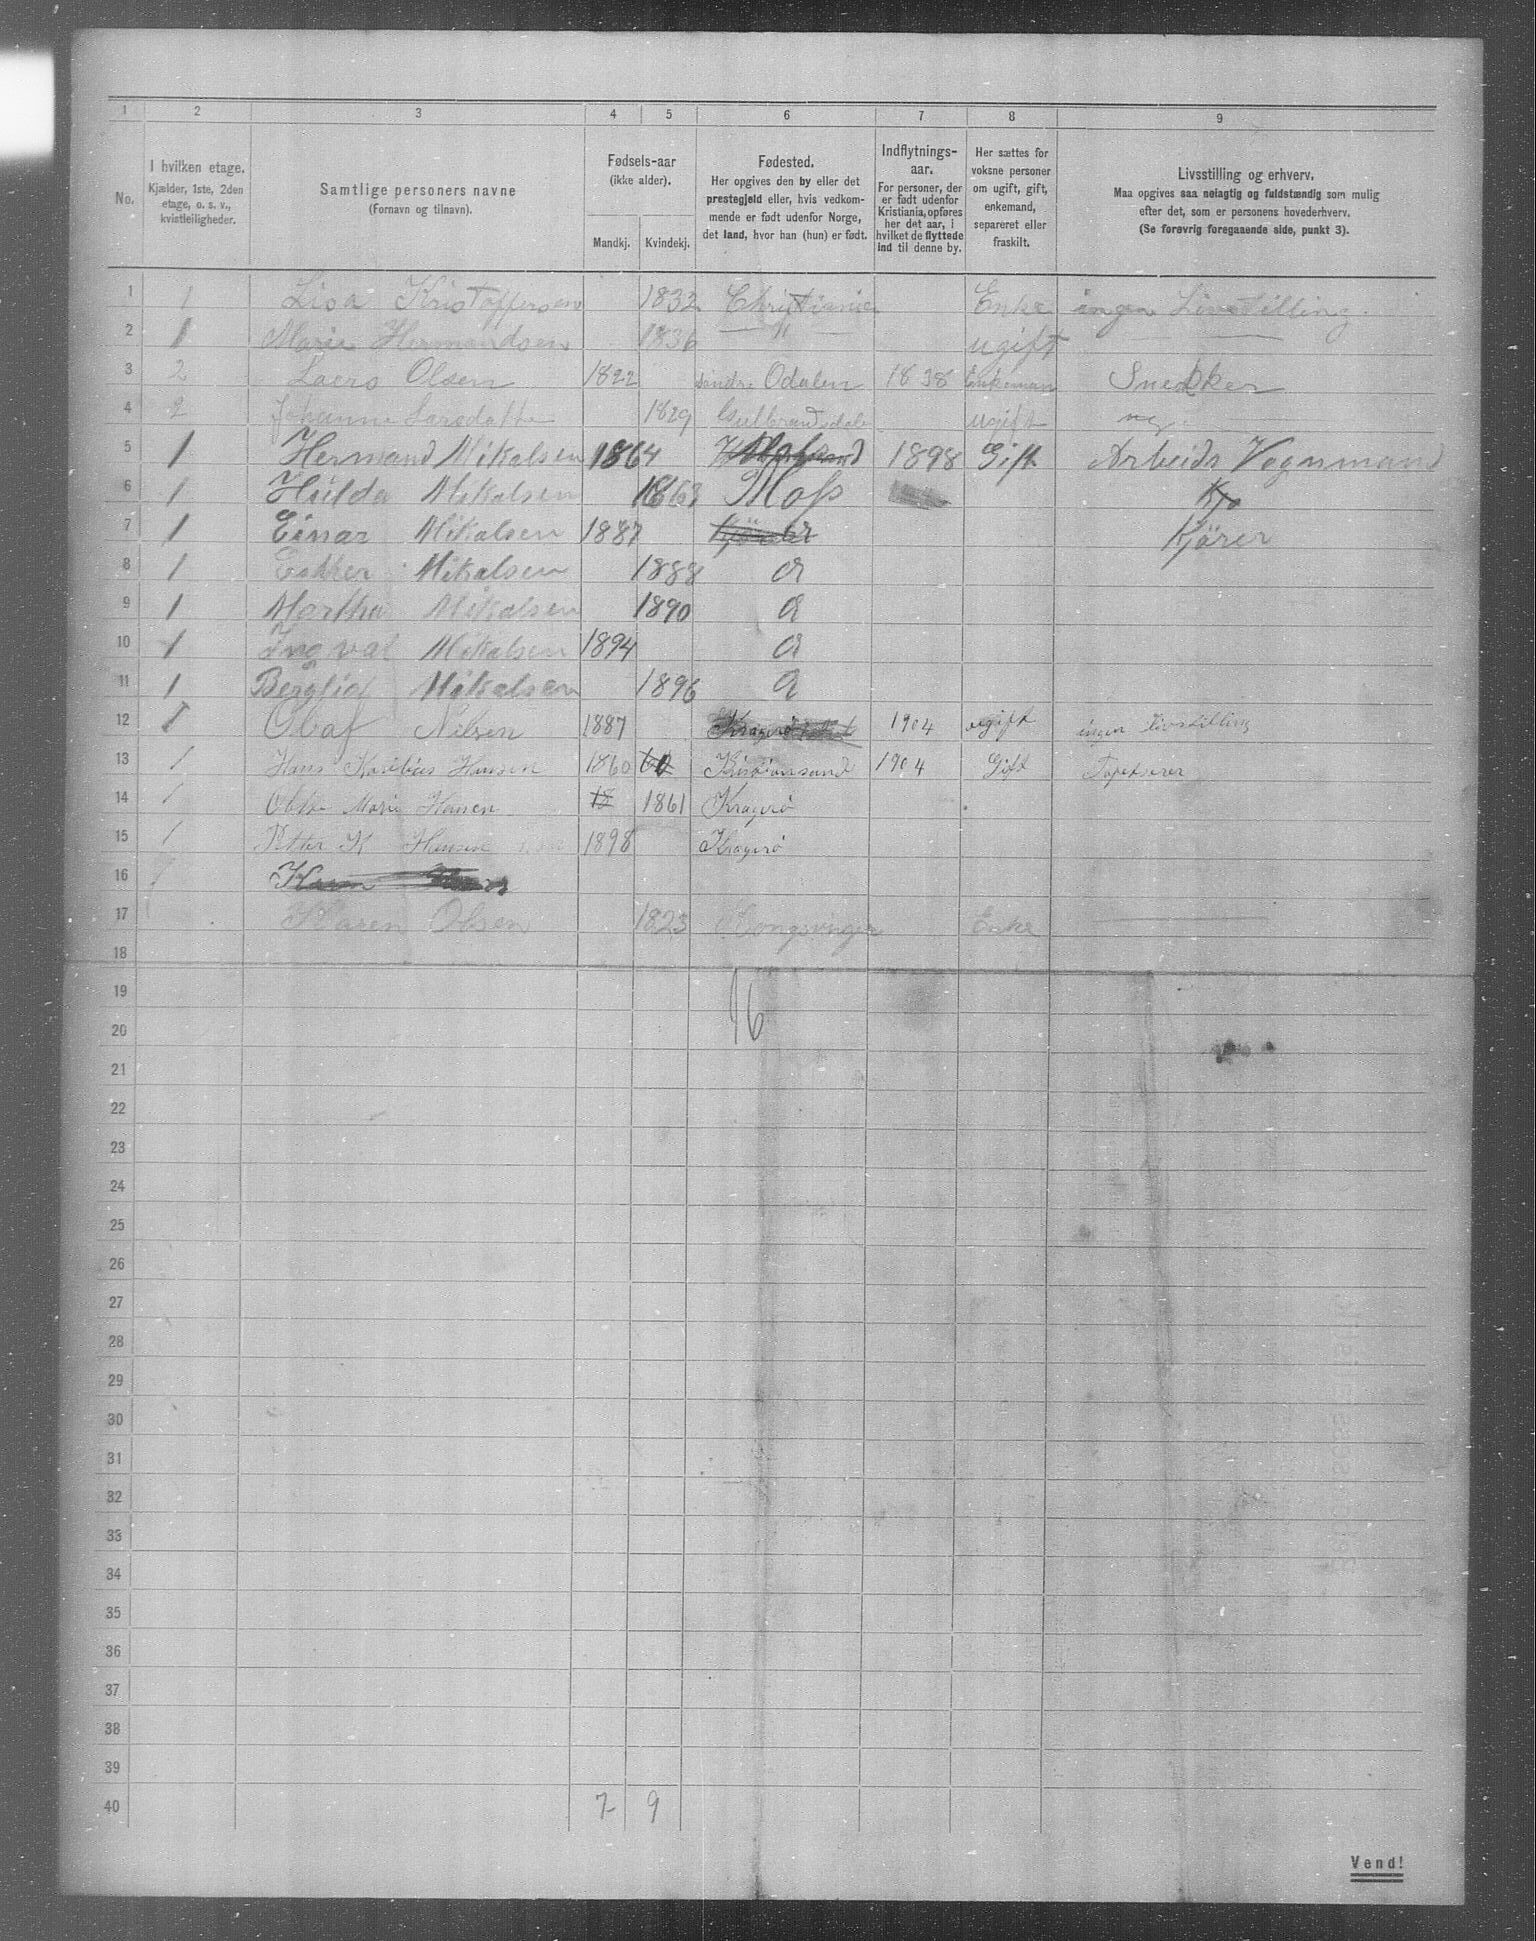 1 2 3 4 5 6 7 8 9
No.
I hvilken etage.
Kjælder, 1ste, 2den
etage, o. s. v.,
kvistleiligheder.
Samtlige personers navne
(Fornavn og tilnavn).
Fødsels-aar
(ikke alder).
Mandkj. Kvindekj.
Fødested.
Her opgives den by eller det
prestegjeld eller, hvis vedkom-
mende er født udenfor Norge,
det land, hvor han (hun) er født.
Indflytnings-
aar.
For personer, der
er født udenfor
Kristiania, opføres
her det aar, i
hvilket de flyttede
ind til denne by.
Her sættes for
voksne personer
om ugift, gift,
enkemand,
separeret eller
fraskilt.
Livsstilling og erhverv.
Maa opgives saa nøiagtig og fuldstændig som mulig
efter det, som er personens hovederhverv.
(Se forøvrig foregaaende side, punkt 3).
1 1 Lisa Kristoffersen 1832 Christiania Enke ingen Livstilling.
2 1 Marie Hermandsen 1836 " ugift
3 2 Laers Olsen 1822 Søndre Odalen 1838 Enkeman Snekker
4 2 Johanne Larsdatte 1829 Gulbrandsdale ugift
5 1 Hermand Mikalsen 1864 1898 Gift Arbeids Vognmand
6 1 Hulda Mikalsen 1863 Moss Kjø
7 1 Einar Mikalsen 1887 Kjører
8 1 Mikalsen 1888 a
9 1 Martha Mikalsen 1890 a
10 1 Ingval Mikalsen 1894 a
11 1 Berglid Mikalsen 1896 a
12 1 Olaf Nilsen 1887 Kragerø 1904 ugift ingen livstilling
13 1 Hans Hansen 1860 60 Kristiansand 1904 Gift Tapetserer
14 1 Marie Hansen 18 1861 Kragerø
15 1 Petter K Hansen 1898 Kragerø
16
17 Karen Olsen 1823 Kongsvinger Enke
18
19
16
20
21
22
23
24
25
26
27
28
29
30
31
32
33
34
35
36
37
38
39
40 7 9
Vend!